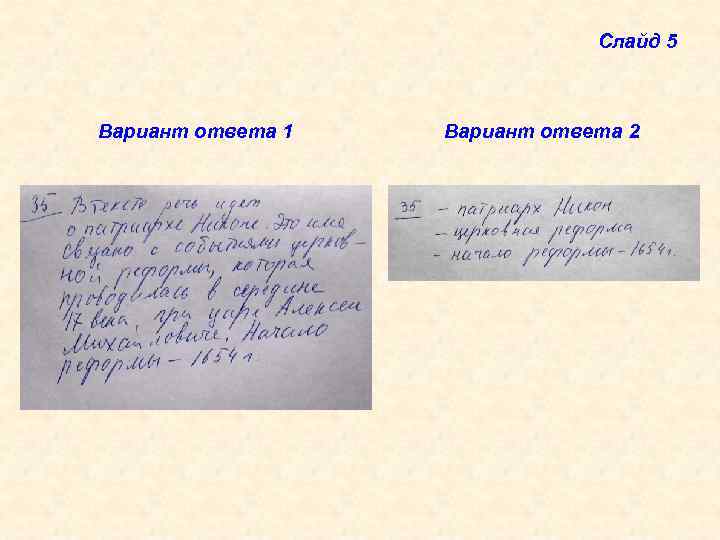 Слайд 5
Вариант ответа 1
Вариант ответа 2
35 В тексте речь идет
о патриархе Никоне. Это имя
связано с событиями церков-
ной реформы, которая
проводилась в середине
17 века, при царе Алексее
Михайловиче. Начало
реформы – 1654 г.
35 – патриарх Никон
– церковная реформа
– начало реформы – 1654 г.